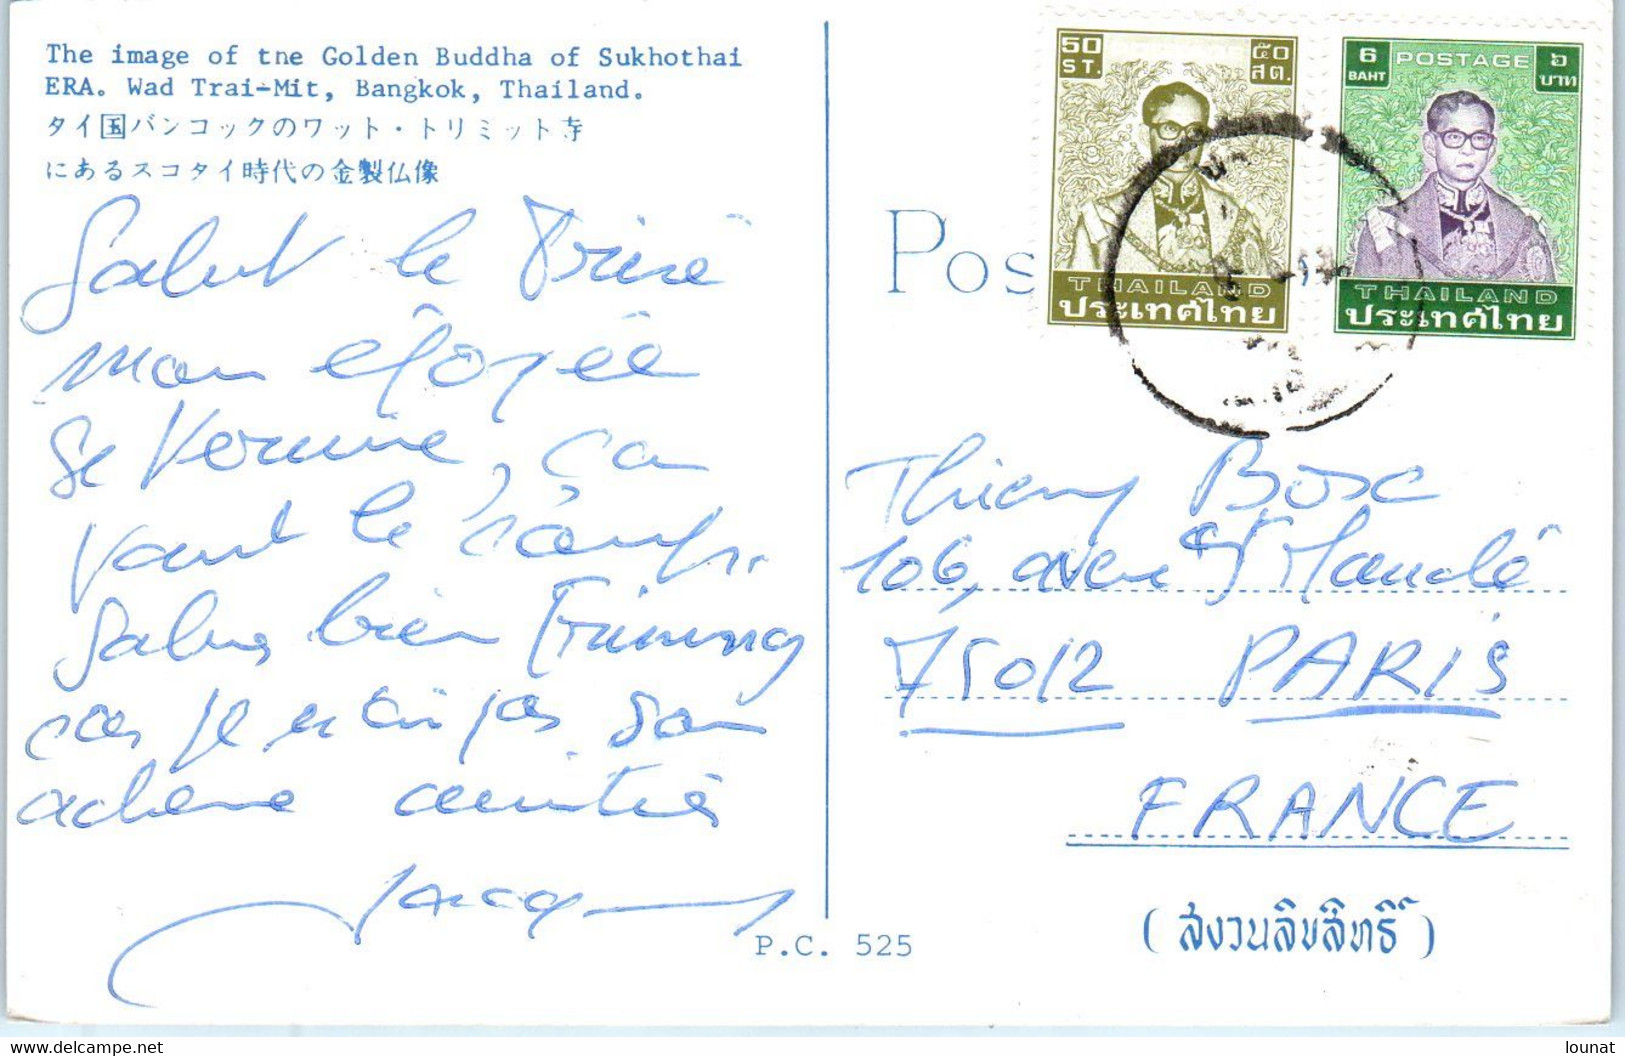 The image of tne Golden Buddha of Sukhothai
ERA. Wad Trai-Mit, Bangkok, Thailand.
タイ国バンコックのワット・トリミット寺
にあるスコタイ時代の金製仏像
Salut le
mon
se Vermine, ça
vaut le
Salues bien
car je n'ai pas son
adresse amitiés
Jacq
P.C. 525
Pos
50 ST. POSTAGE ๕๐ สต.
THAILAND
ประเทศไทย
6 BAHT POSTAGE ๖ บาท
THAILAND
ประเทศไทย
Thierry Bosc
106, avenue St Mandé
75012 PARIS
FRANCE
(สงวนลิขสิทธิ์)
delcampe.net
lounat